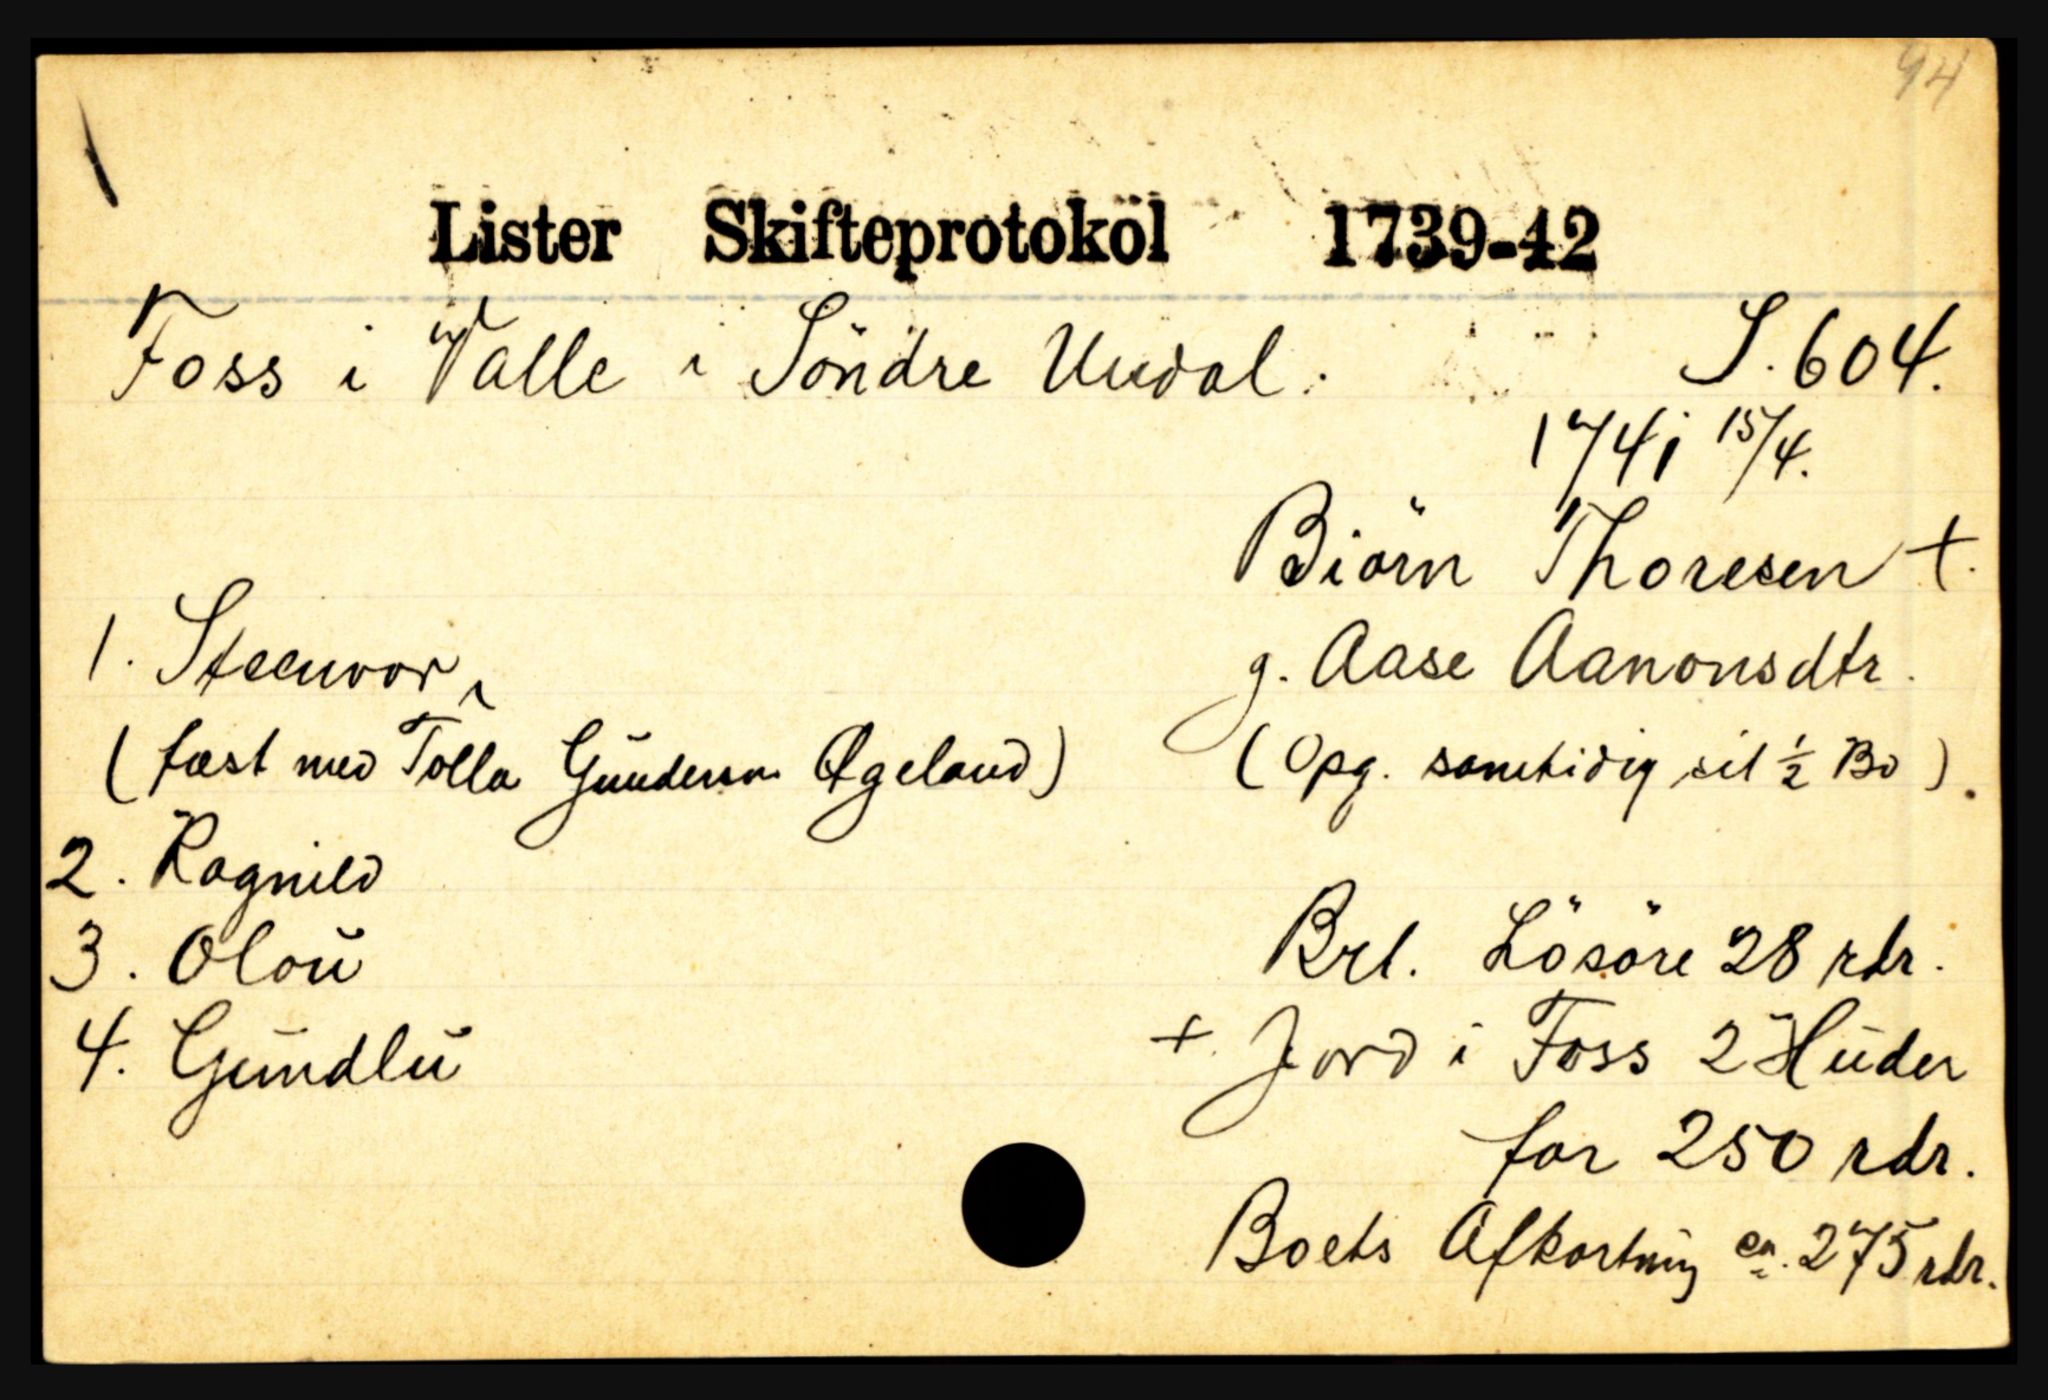 94
Lister Skifteprotokol 1739-42
Foss i Valle i Söndre Undal. S. 604.
1741 15/4.
Biörn Thoresen +.
g. Aase Aanonsdtr.
(Opg. samtidig sit ½ Bo).
1. Steenvor
(fæst med Tolla Gundersen Øgeland)
2. Ragnild
3. Olou
4. Gundlu
Brt. Lösöre 28 rdr.
+ Jord i Foss 2 Huder
for 250 rdr.
Boets Afkortning ca. 275 rdr.